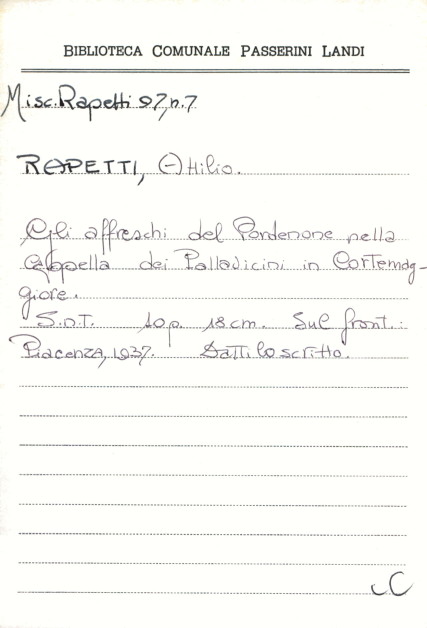 BIBLIOTECA COMUNALE PASSERINI LANDI
Misc. Rapetti 97, n. 7
RAPETTI, Attilio.
Gli affreschi del Pordenone nella
cappella dei Palladicini in Cortemag-
giore.
S.n.T. 10 p. 18 cm. Sul front.:
Piacenza, 1937. Dattiloscritto.